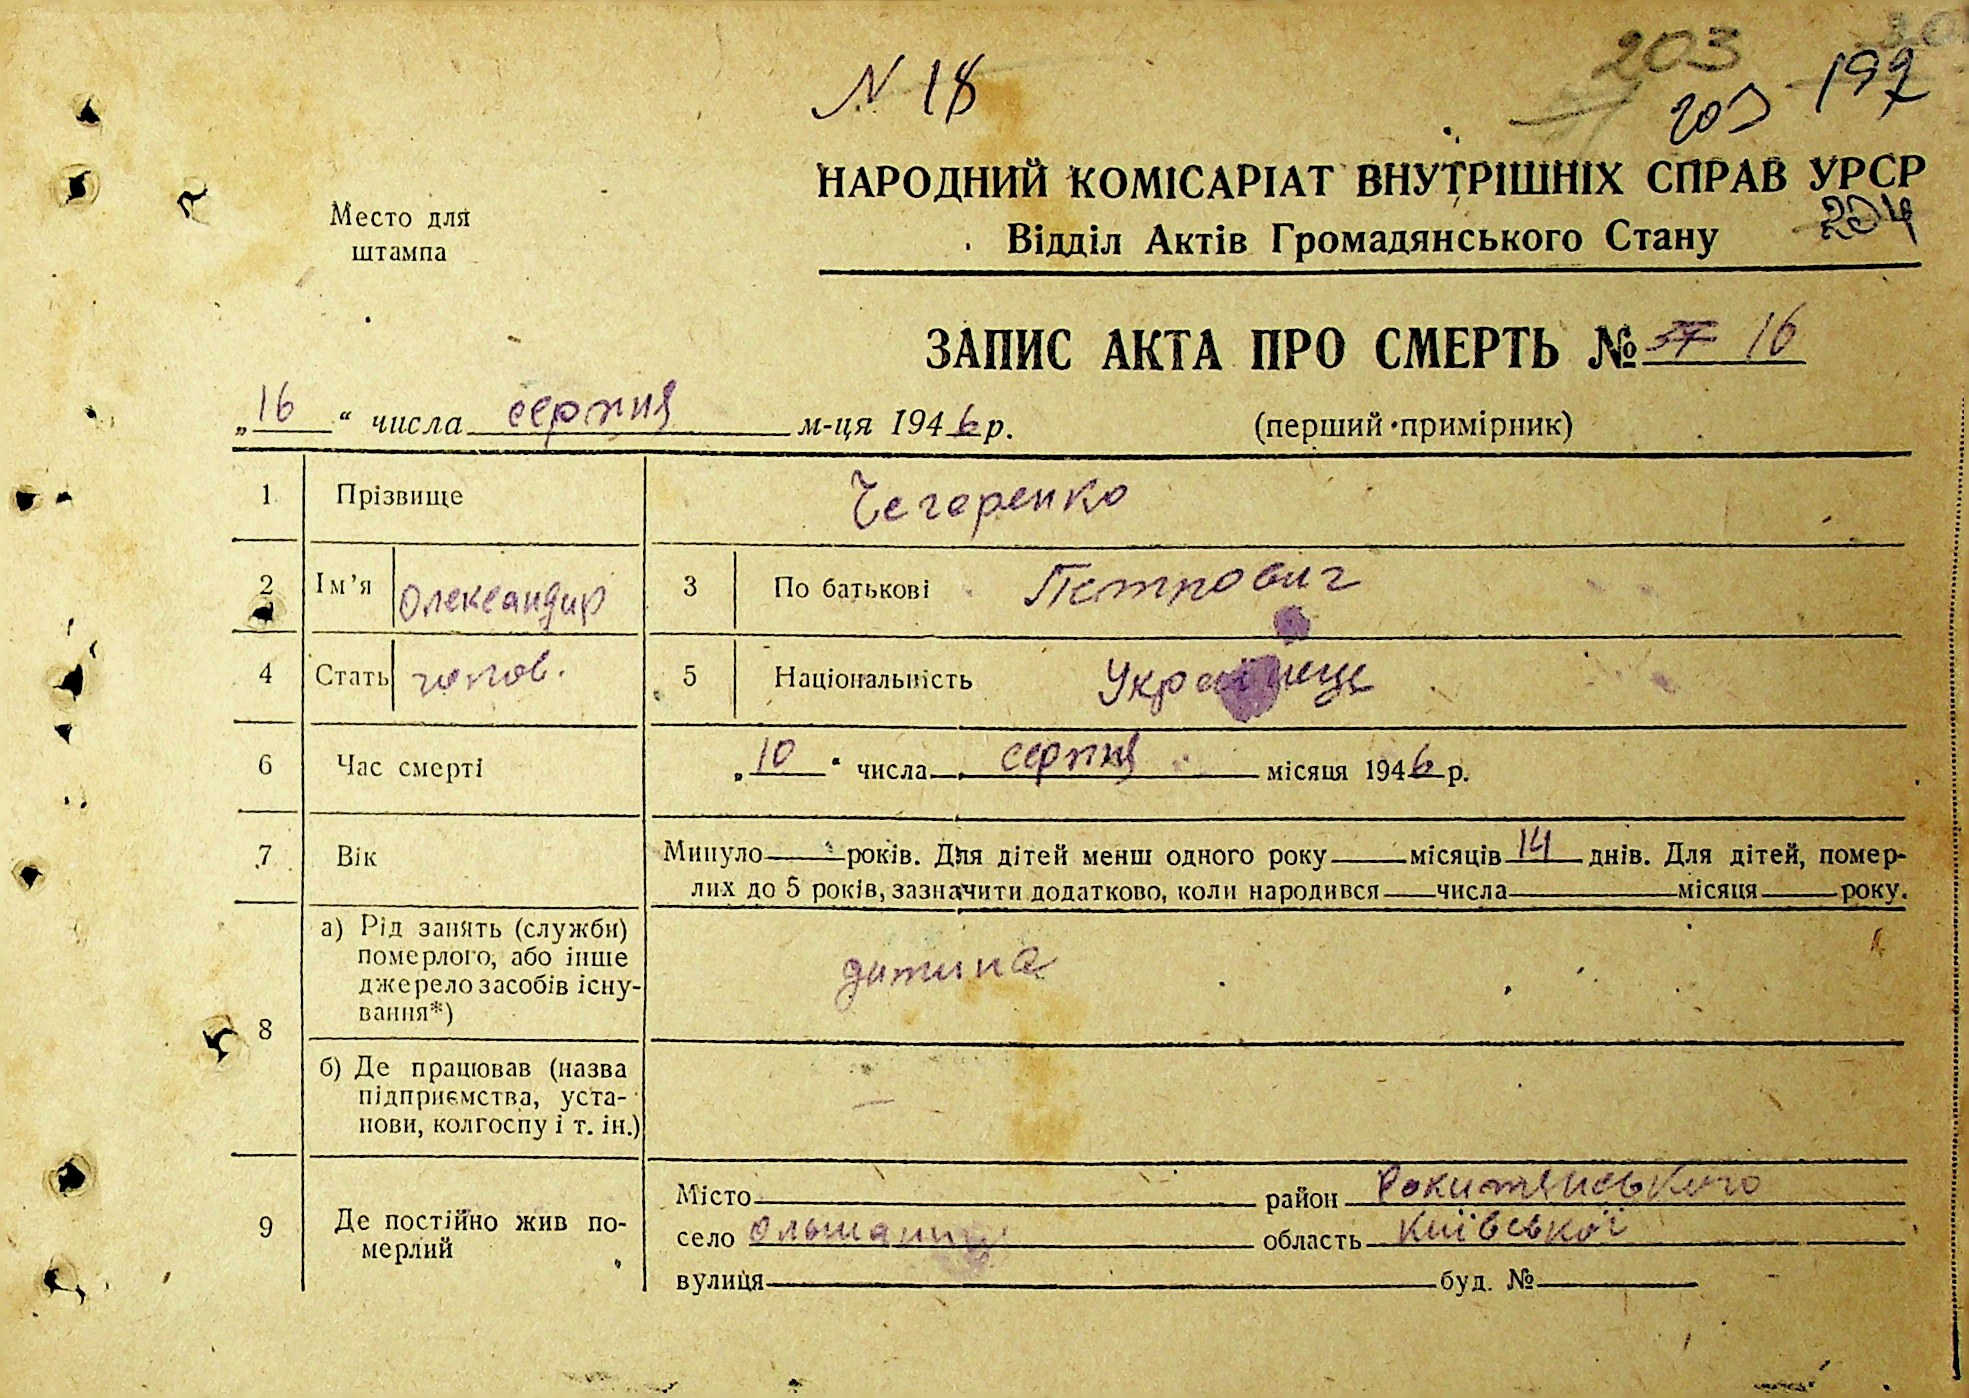 N 18
203
197
203
НАРОДНИЙ КОМІСАРІАТ ВНУТРІШНІХ СПРАВ УРСР
204
Место для
штампа
Відділ Актів Громадянського Стану
ЗАПИС АКТА ПРО СМЕРТЬ № 37 16
„16“ числа серпня м-ця 1946 р.
(перший примірник)
1 Прізвище Чегеренко
2 Ім'я Олександир 3 По батькові Петрович
4 Стать чолов. 5 Національність Українець
6 Час смерті „10“ числа серпня місяця 1946 р.
7 Вік Минуло років. Для дітей менш одного року місяців 14 днів. Для дітей, помер-
лих до 5 років, зазначити додатково, коли народився числа місяця року.
8
а) Рід занять (служби)
померлого, або інше
джерело засобів існу-
вання*)
дитина
б) Де працював (назва
підприємства, уста-
нови, колгоспу і т. ін.)
—
9 Де постійно жив по-
мерлий
Місто район Рокитянського
село Ольшаниця область Київської
вулиця буд. №